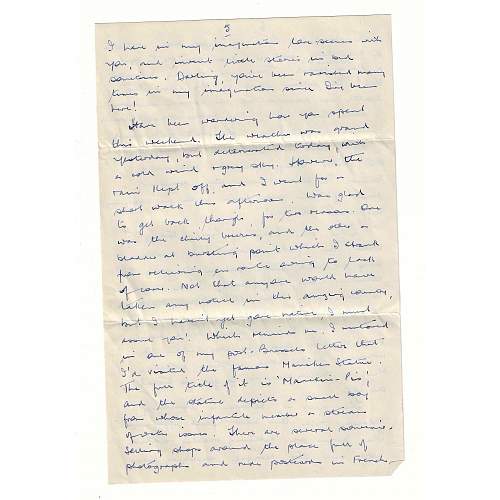 5
I have in my imagination love scenes with
you, and invent little stories in bed
sometimes. Darling, you've been ravished many
times in my imagination since I've been
here!
Have been wondering how you spent
this weekend. The weather was grand
yesterday, but deteriorated today, with
a cold wind & grey sky. However, the
rain kept off, and I went for a
short walk this afternoon. Was glad
to get back though, for two reasons. One
was the chilly breeze, and the other a
bladder at bursting point which I shrank
from relieving en route owing to lack
of cover. Not that anyone would have
taken any notice in this amazing country,
but I haven't yet gone native, I must
assure you! Which reminds me. I mentioned
in one of my post-Brussels letters that
I'd visited the famous Maniken Statue.
The full title of it is 'Maneken-Pis',
and the statue depicts a small boy
from whose infantile member a stream
of water issues. There are several souvenir-
selling shops around the place full of
photographs and rude postcards in French